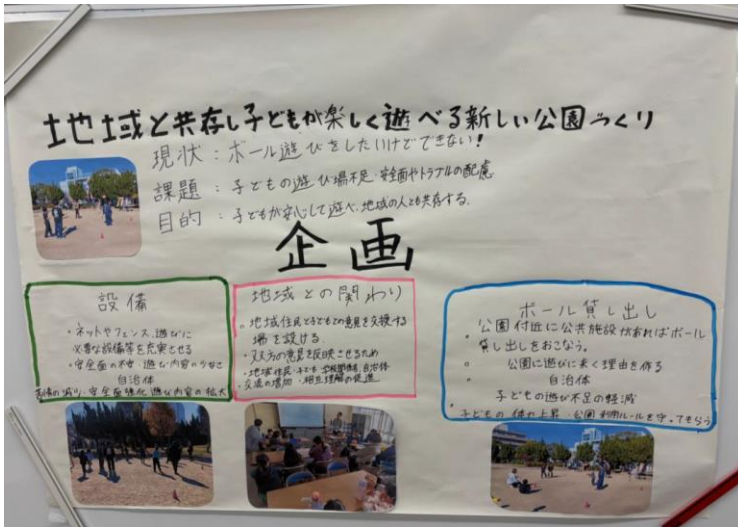 地域と共存し子どもが楽しく遊べる新しい公園づくり
現状：ボール遊びをしたいけどできない！
課題：子どもの遊び場不足・安全面やトラブルの配慮
目的：子どもが安心して遊べ、地域の人とも共存する.
企画
設備
・ネットやフェンス、遊びに
必要な設備等を充実させる
・安全面の不安・遊び内容の少なさ
自治体
苦情の減少・安全面強化・遊び内容の拡大
地域との関わり
・地域住民と子どもでの意見を交換する
場を設ける.
・双方の意見を反映させるため
・地域住民・子ども・学校関係者、自治体
・交流の増加・相互理解の促進
ボール貸し出し
・公園付近に公共施設があればボール
貸し出しをおこなう。
・公園に遊びに来く理由を作る
・自治体
・子どもの遊び不足の軽減
・子どもの体力上昇・公園利用ルールを守ってもらう